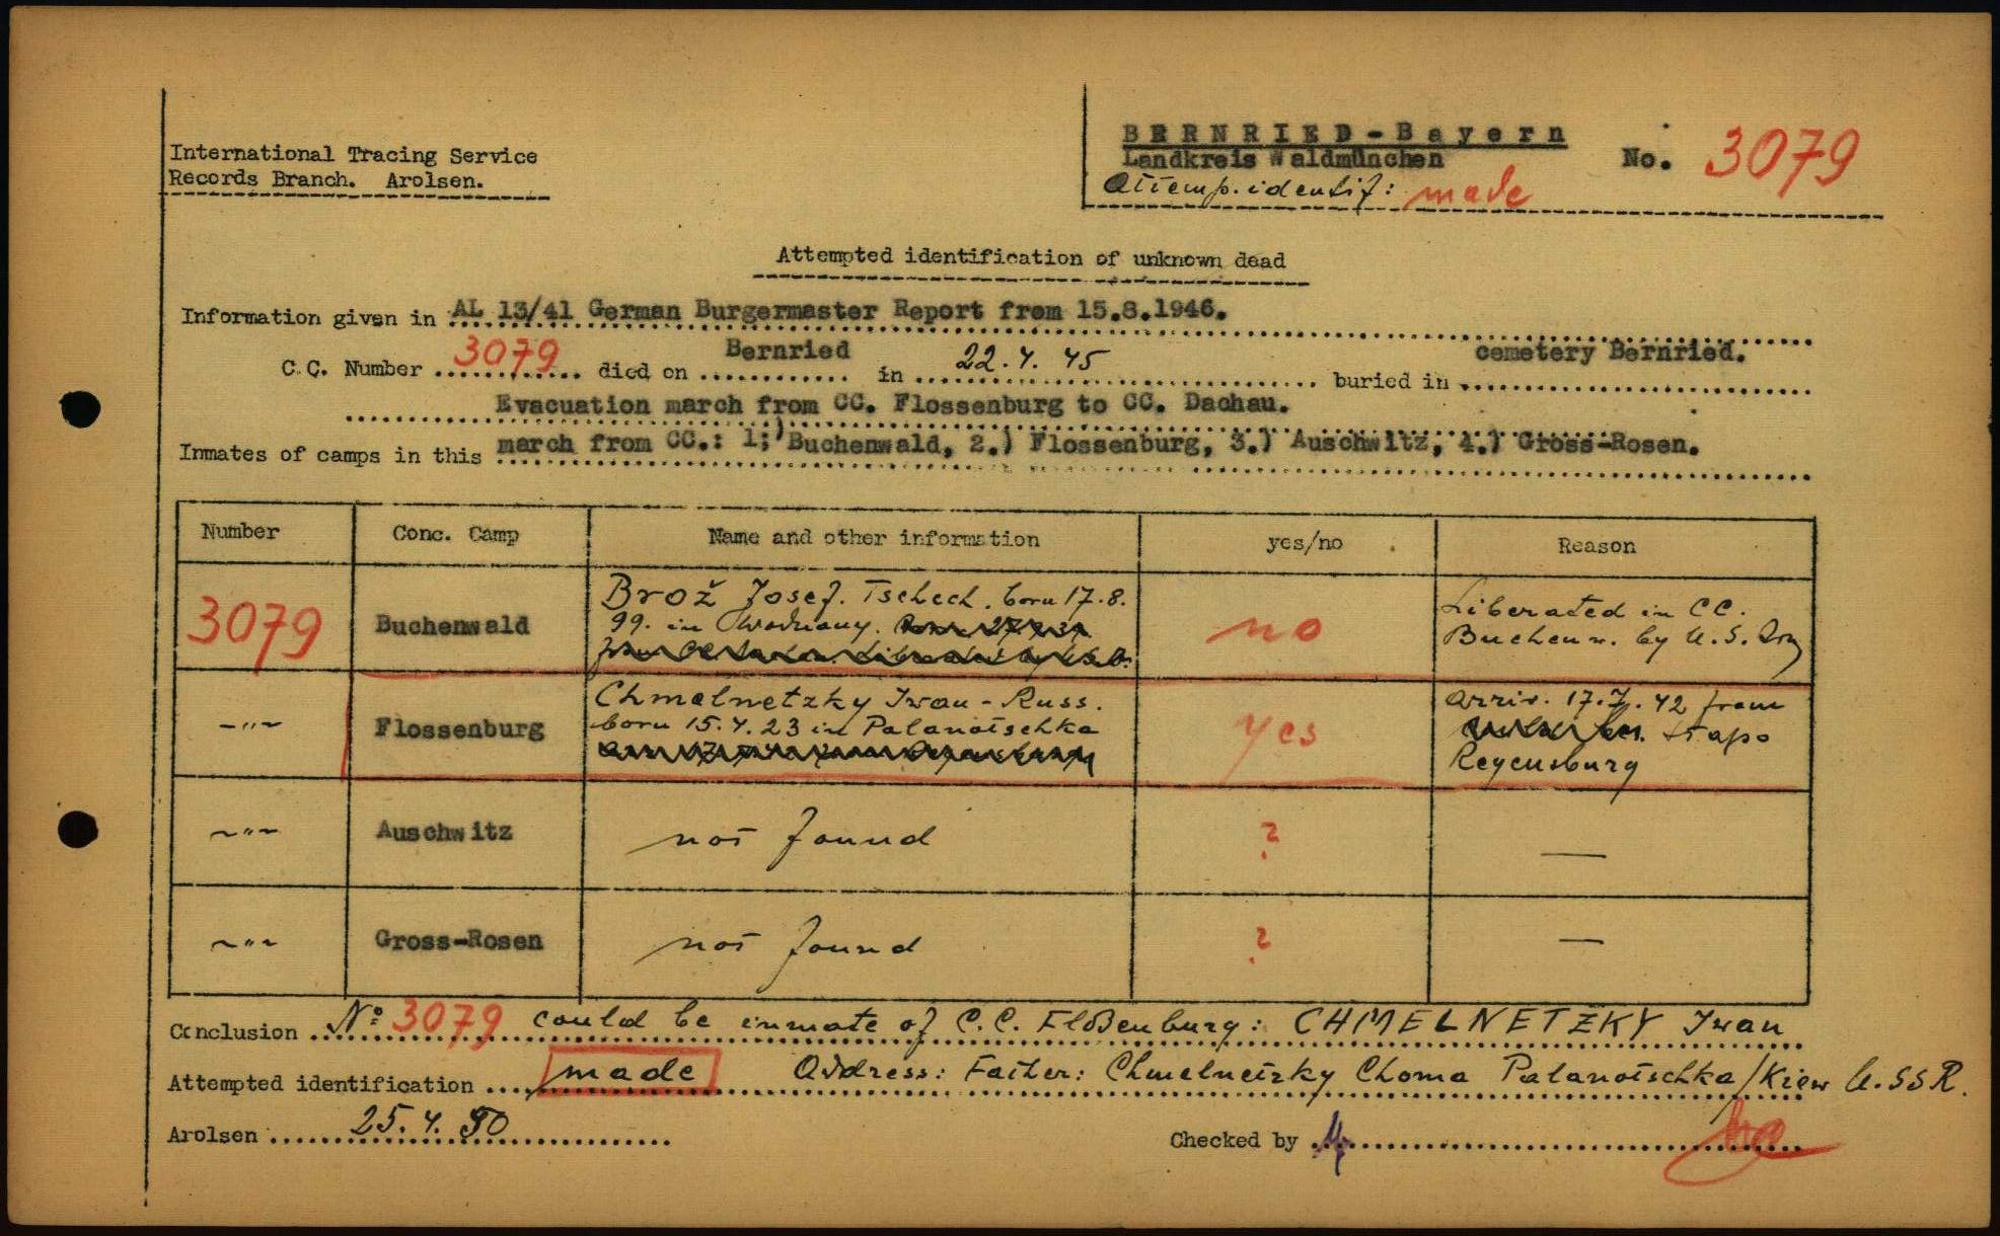 International Tracing Service
Records Branch. Arolsen.
BERNRIED-Bayern
Landkreis Waldmünchen
No. 3079
Attemp. identif: made
Attempted identification of unknown dead
Information given in AL 13/41 German Burgermaster Report from 15.8.1946.
C.C. Number 3079 died on Bernried in 22.4.45 buried in cemetery Bernried.
Evacuation march from CC. Flossenburg to CC. Dachau.
Inmates of camps in this march from CC.: 1;) Buchenwald, 2.) Flossenburg, 3.) Auschwitz, 4.) Gross-Rosen.
Number Conc. Camp Name and other information yes/no Reason
3079 Buchenwald
Brož Josef. Tschech. born 17.8.
99. in Wodnany.
no
Liberated in CC.
Buchenw. by U.S.
-"- Flossenburg
Chmelnetzky Iwan - Russ.
born 15.4.23 in Palanotschka
yes
Arriv. 17.7.42 from
Stapo
Regensburg
-"- Auschwitz not found ? —
-"- Gross-Rosen not found ? —
Conclusion No 3079 could be inmate of C.C. Floßenburg: CHMELNETZKY Iwan
Attempted identification made Address: Father: Chmelnetzky Choma Palanotschka/Kiew U.SSR.
Arolsen 25.4.50
Checked by